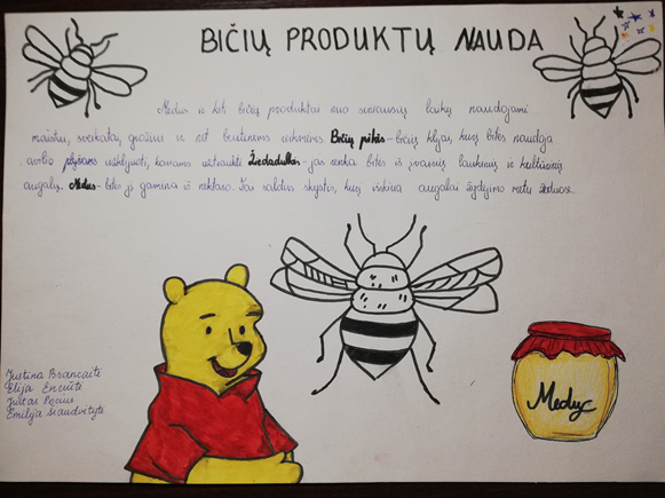 BIČIŲ PRODUKTŲ NAUDA
Medus ir kiti bičių produktai nuo seniausių laikų naudojami
maistui, sveikatai, grožiui ir net buitinėms reikmėms. Bičių pikis - bičių klijai, kurį bitės naudoja
avilio plyšiams užklijuoti, koriams sutvirtinti Žiedadulkės - jas renka bitės iš įvairių laukinių ir kultūrinių
augalų. Medus - bitės jį gamina iš nektaro. Tai saldus skystis, kurį išskiria augalai žydėjimo metu žieduose.
Justina Brancaitė
Elija
Justas Pocius
Emilija Siaudvitytė
Medus